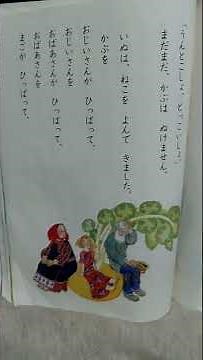 「うんとこしょ、どっこいしょ」
まだまだ、かぶは ぬけません。
いぬは、ねこを よんで きました。
かぶを
おじいさんが ひっぱって、
おじいさんを
おばあさんが ひっぱって、
おばあさんを
まごが ひっぱって、